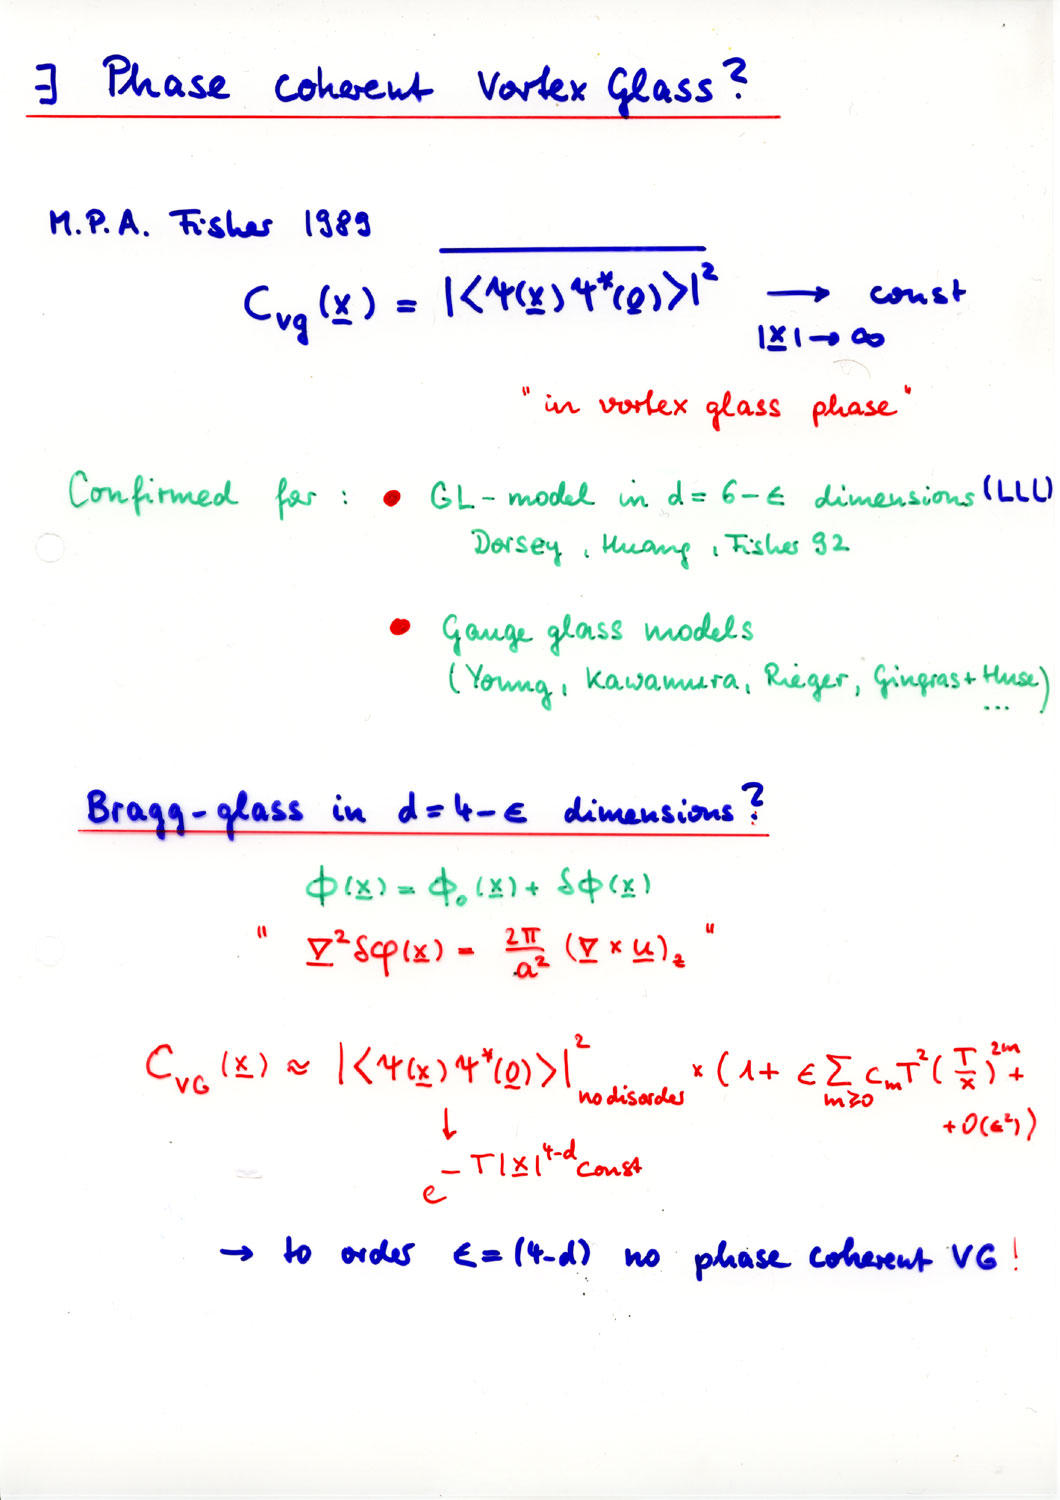 ∃ Phase coherent Vortex Glass?
M.P.A. Fisher 1989
C_vg(x) = |<Ψ(x)Ψ*(0)>|² → const
|x| → ∞
"in vortex glass phase"
Confirmed for: • GL-model in d=6-ε dimensions (LLL)
Dorsey, Huang, Fisher 92
• Gauge glass models
(Young, Kawamura, Rieger, Gingras+Huse)
...
Bragg-glass in d=4-ε dimensions?
ϕ(x) = ϕ₀(x) + δϕ(x)
" ∇²δφ(x) = 2π/a² (∇×u)_z "
C_VG(x) ≈ |<Ψ(x)Ψ*(0)>|²_no disorder × (1 + ε Σ_{m≥0} c_m T² (T/x)^{2m} +
+ O(ε²))
↓
e^{-T|x|^{4-d} const}
→ to order ε=(4-d) no phase coherent VG!